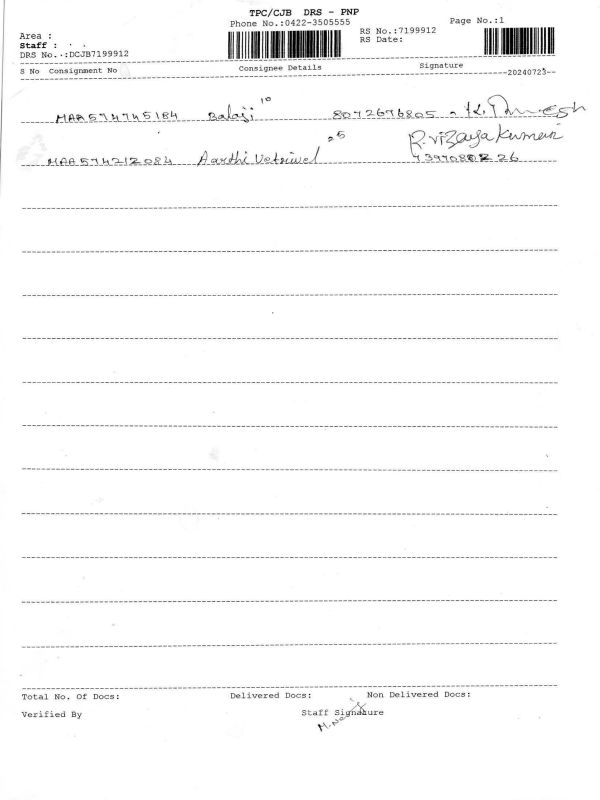 TPC/CJB DRS - PNP
Phone No.:0422-3505555
Page No.:1
Area :
RS No.:7199912
Staff :
RS Date:
DRS No.:DCJB7199912
S No Consignment No Consignee Details Signature
--20240723--
MAA574745184 Balaji 10 8072676805
MAA574212084 Aarthi Vetrivel 25 R. Vijayakumar
Total No. Of Docs: Delivered Docs: Non Delivered Docs:
Verified By Staff Signature